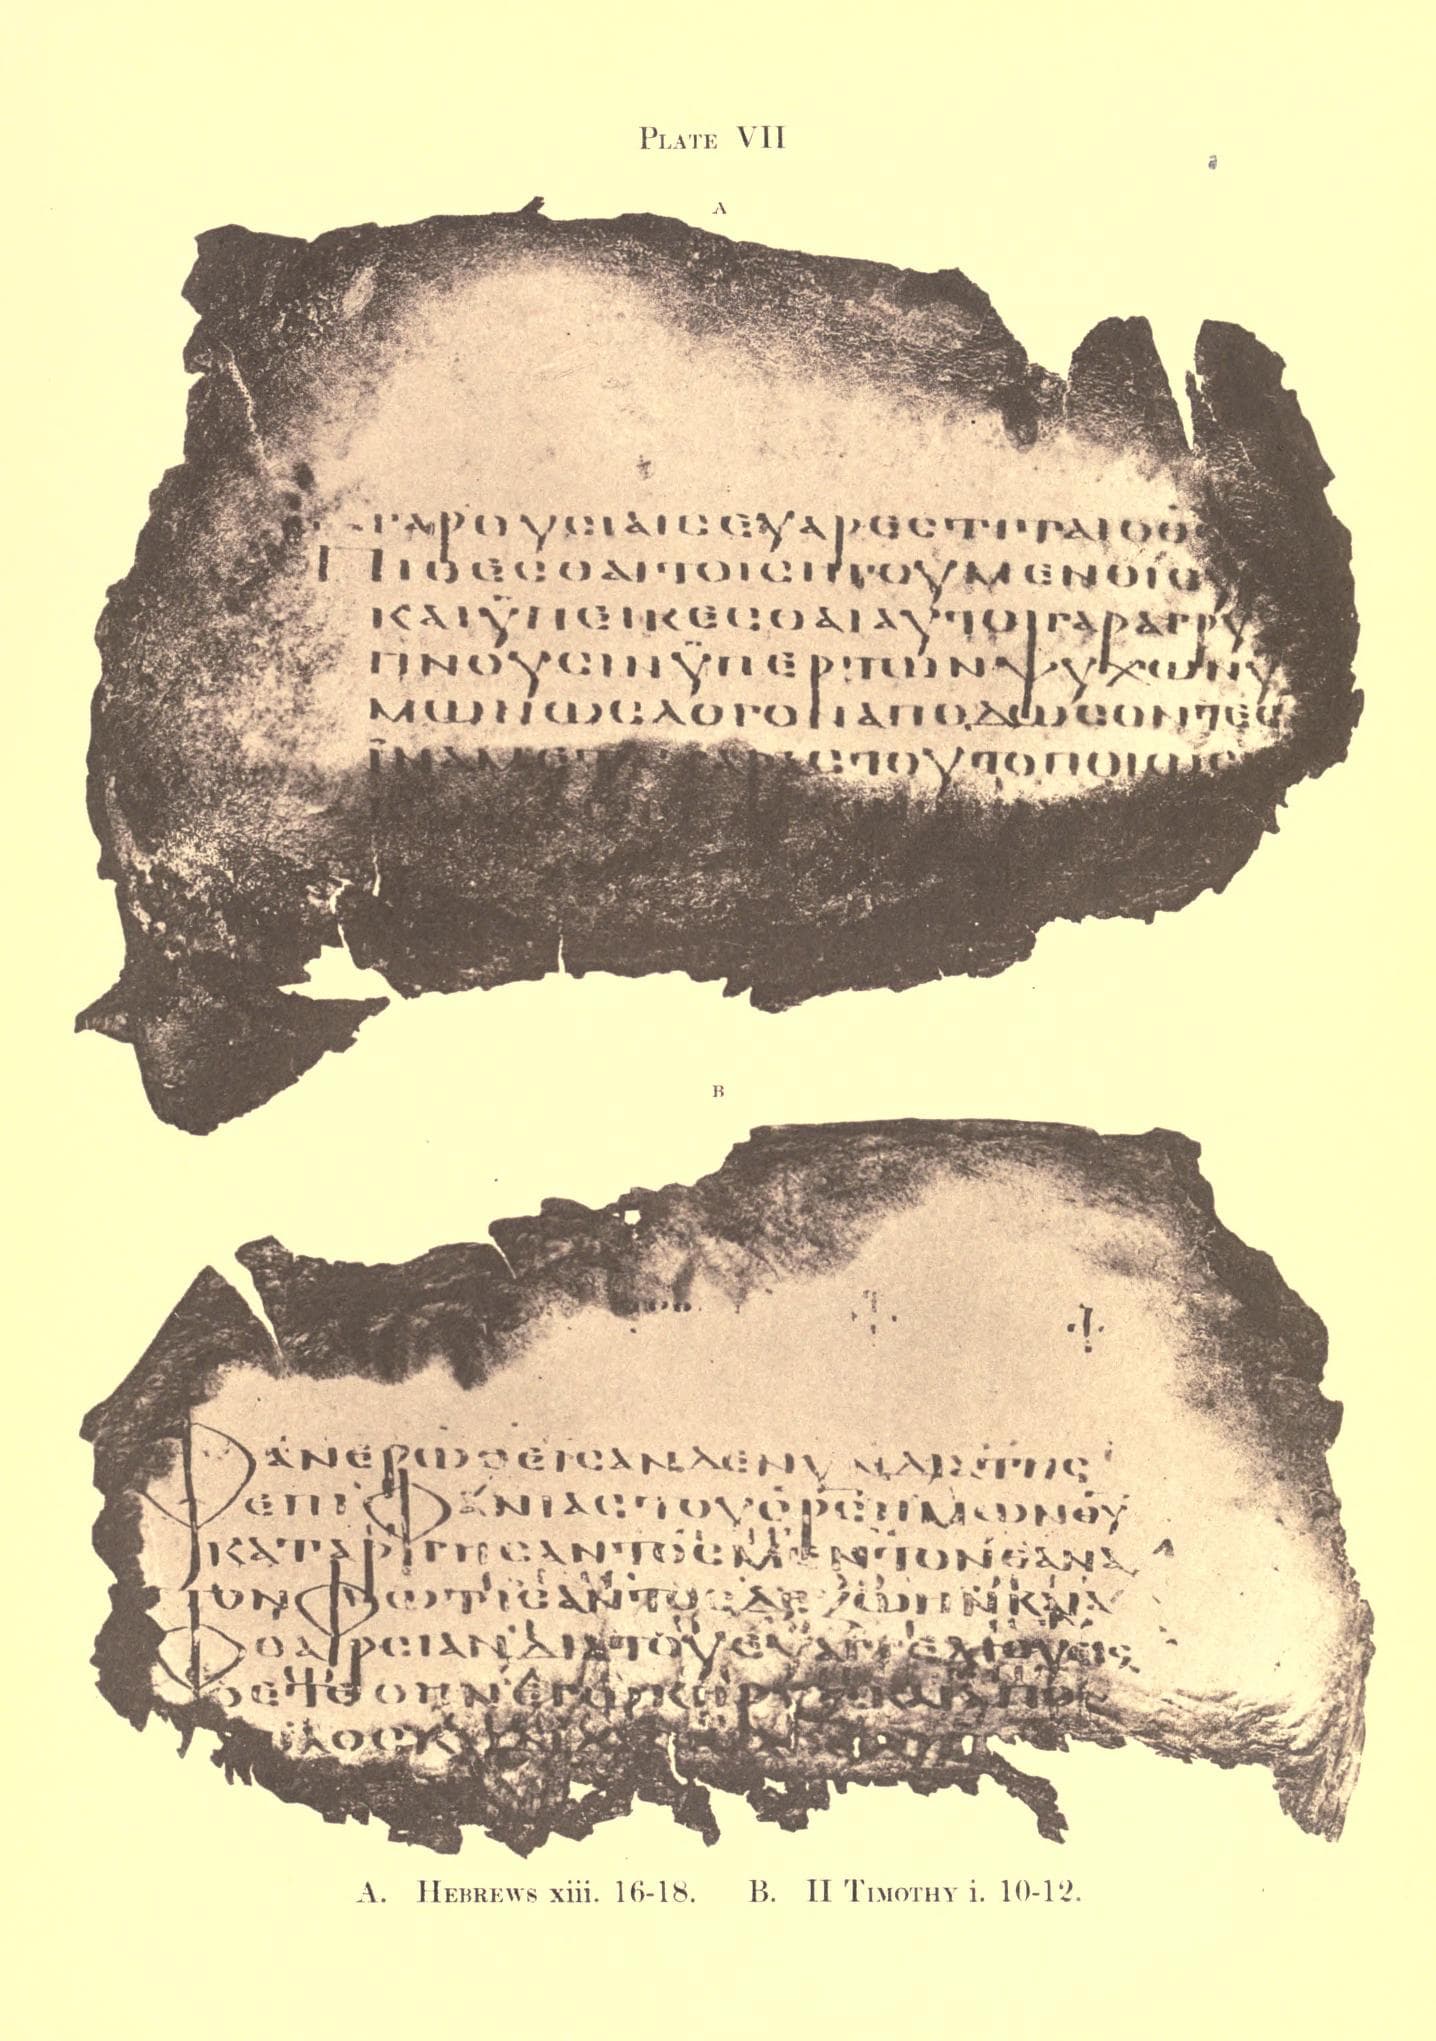 PLATE VII
A
ΓΑΡΘΥϹΙΑΙϹΕΥΑΡΕϹΤΙΤΑΙΟΘ
ΠΙΘΕϹΘΑΙΤΟΙϹΗΓΟΥΜΕΝΟΙϹ
ΚΑΙΫΠΕΙΚΕϹΘΑΙΑΥΤΟΙΓΑΡΑΓΡΥ
ΠΝΟΥϹΙΝΫΠΕΡΤΩΝΨΥΧΩΝΥ
ΜΩΝΩϹΛΟΓΟΝΑΠΟΔΩϹΟΝΤΕϹ
ΤΟΥΤΟΠΟΙΩϹ
B
ΦΑΝΕΡΩΘΕΙϹΑΝΔΕΝΥΝΔΙΑΤΗϹ
ΕΠΙΦΑΝΙΑϹΤΟΥϹΡϹΗΜΩΝΘΥ
ΚΑΤΑΡΓΗϹΑΝΤΟϹΜΕΝΤΟΝΘΑΝΑ
ΤΟΝΦΩΤΙϹΑΝΤΟϹΔΕΖΩΗΝΚΑΙΑ
ΦΘΑΡϹΙΑΝΔΙΑΤΟΥΕΥΑΓΓΕΛΙΟΥΕΙϹ
ΟΕΤΕΘΗΝΕΓΩΚΗΡΥΞΚΑΙΑΠΟϹ
ΛΟϹΚΑΙ
A. HEBREWS xiii. 16-18. B. II TIMOTHY i. 10-12.